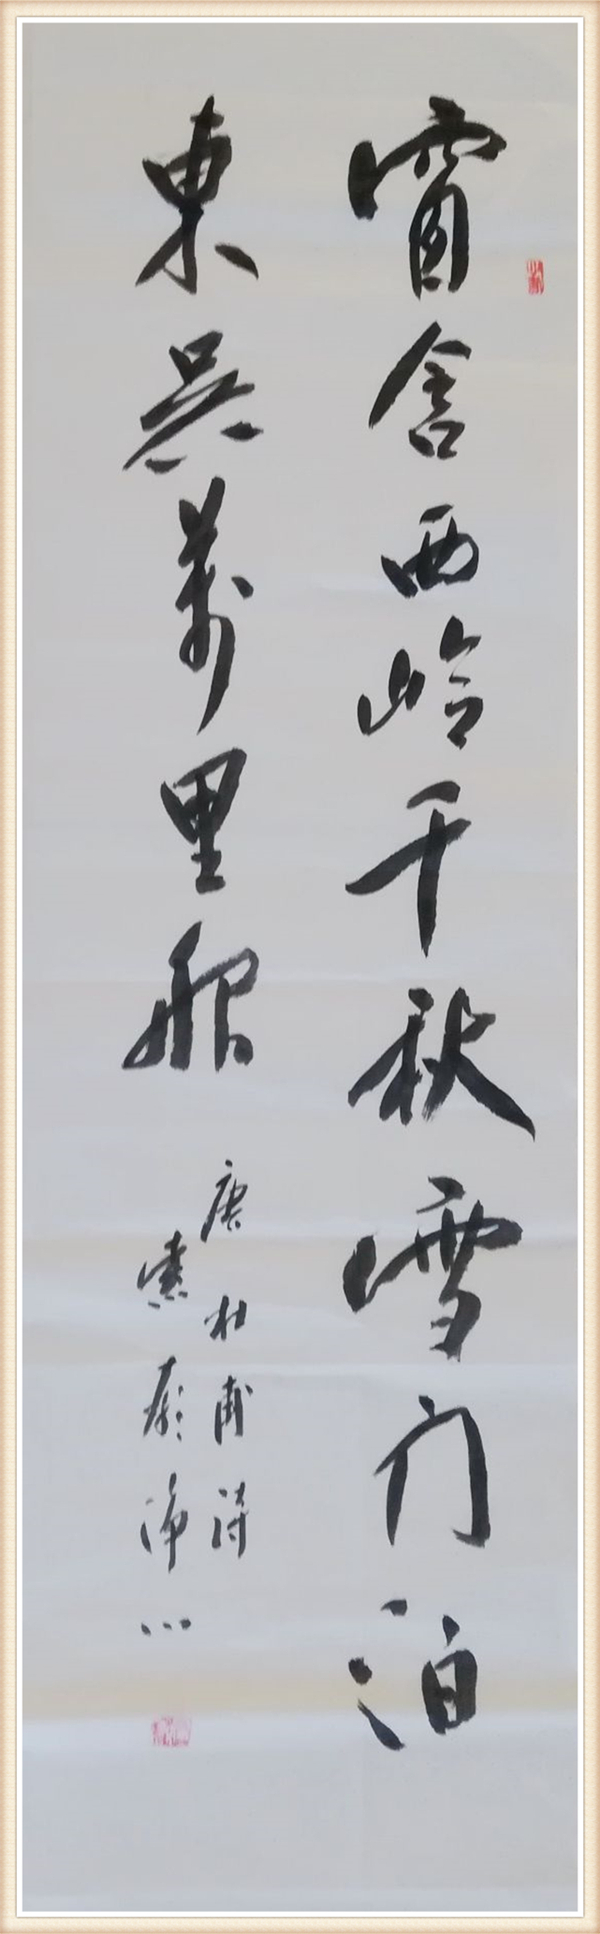 窗含西岭千秋雪门泊
東吴萬里船
唐杜甫诗
净心